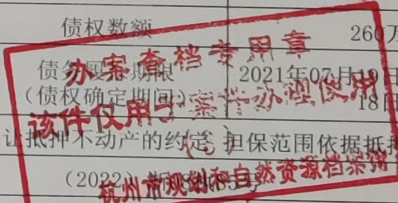 债权数额 260万
办案查档专用章
债务履行期限 2021年07月19日
(债权确定期间) 18日
该件仅用于案件办理使用
让抵押不动产的约定 担保范围依据抵押
(2022)
杭州市规划和自然资源档案馆